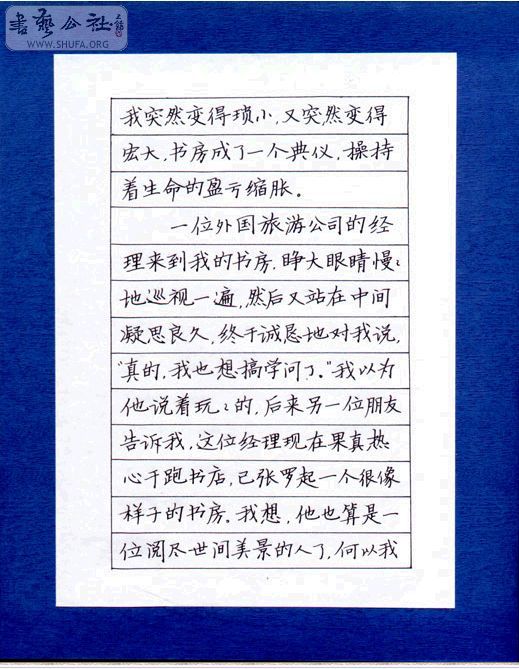 書藝公社
WWW.SHUFA.ORG
我突然变得琐小，又突然变得
宏大，书房成了一个典仪，操持
着生命的盈亏缩胀。
一位外国旅游公司的经
理来到我的书房，睁大眼睛慢々
地巡视一遍，然后又站在中间
凝思良久，终于诚恳地对我说，
“真的，我也想搞学问了。”我以为
他说着玩々的，后来另一位朋友
告诉我，这位经理现在果真热
心于跑书店，已张罗起一个很像
样子的书房。我想，他也算是一
位阅尽世间美景的人了，何以我